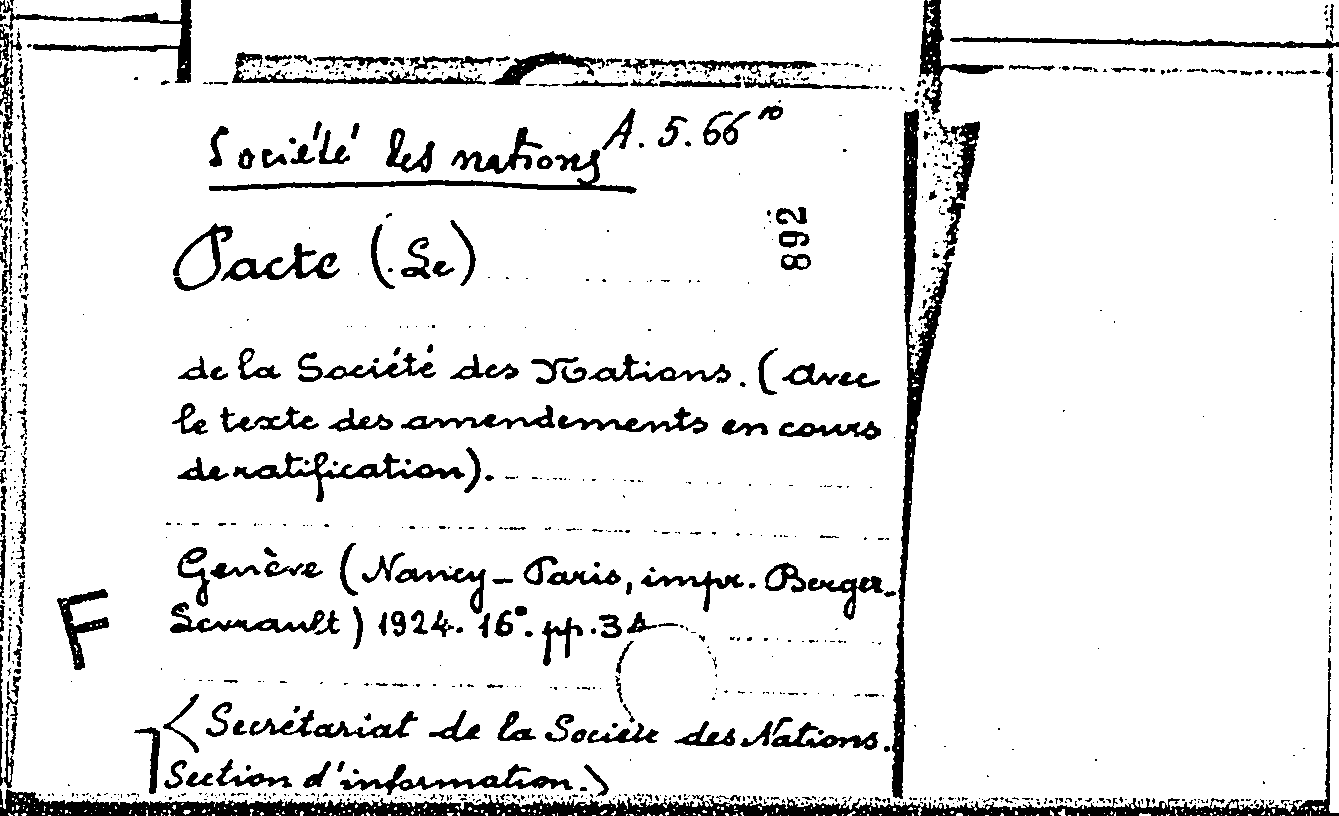 Société des nations A. 5. 66 10
892
Pacte (Le)
de la Société des Nations. (avec
le texte des amendements en cours
de ratification).
Genève (Nancy - Paris, impr. Berger-
Levrault) 1924. 16°. pp. 34
F
<Secrétariat de la Société des Nations.
Section d'information.>